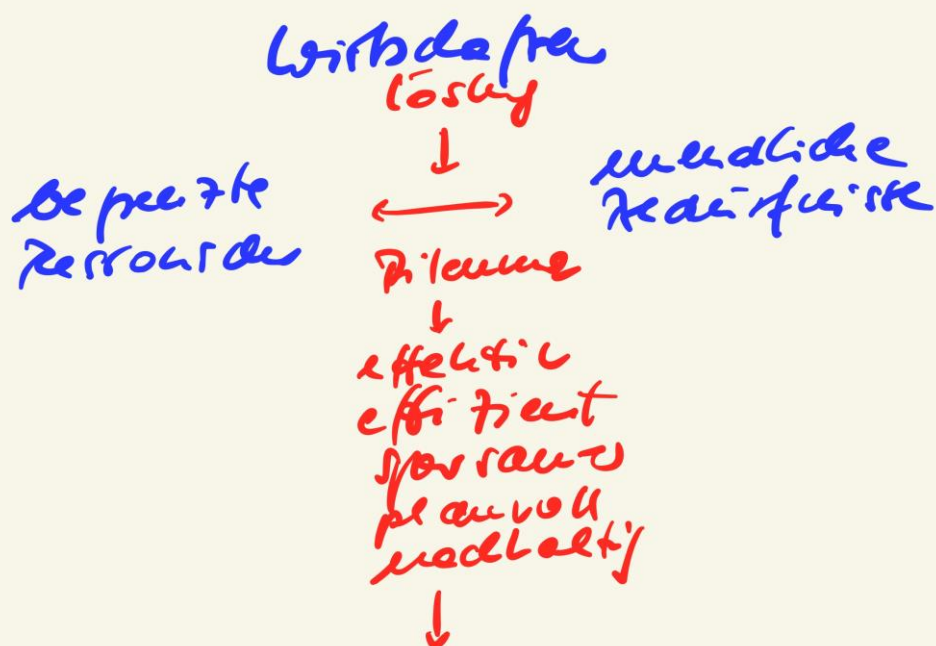 Wirtschaften
Lösung
begrenzte
Ressourcen
unendliche
Bedürfnisse
Dilemma
effektiv
effizient
sparsam
planvoll
nachhaltig